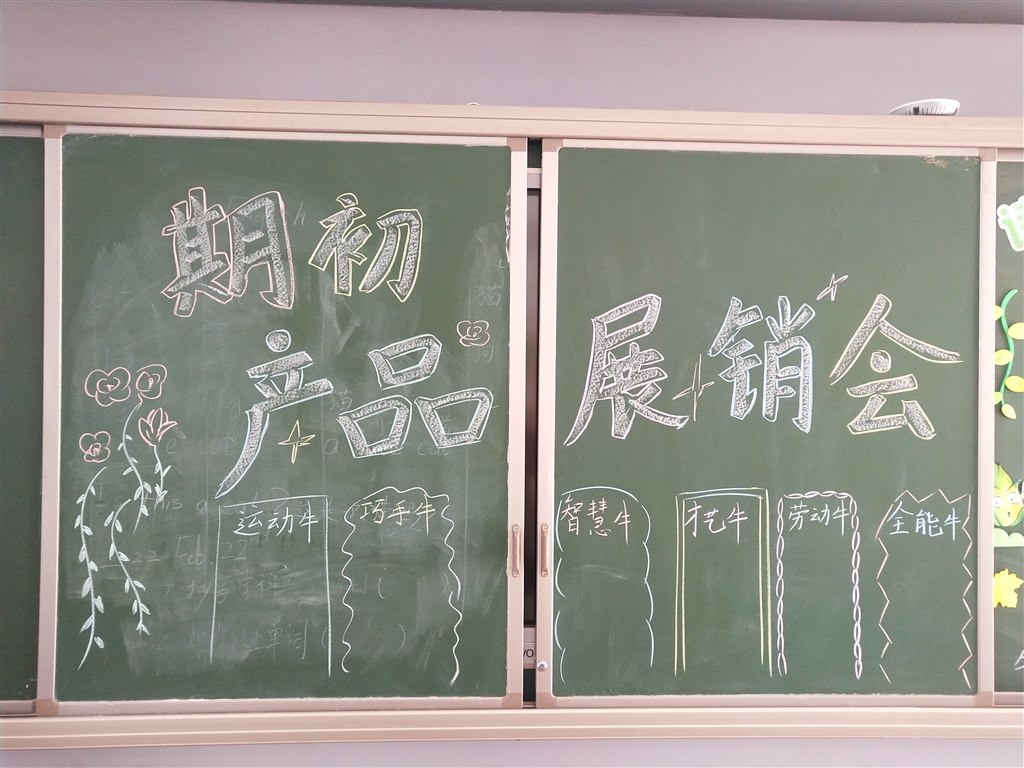 期初
产品
展销会
运动牛
巧手牛
智慧牛
才艺牛
劳动牛
全能牛